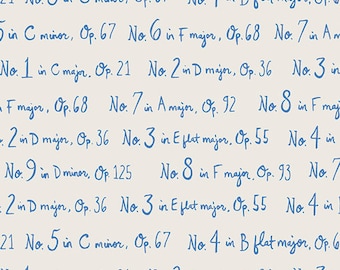 5 in C minor, Op. 67 No. 6 in F major, Op. 68 No. 7 in A
No. 1 in C major, Op. 21 No. 2 in D major, Op. 36 No. 3 in
in F major, Op. 68 No. 7 in A major, Op. 92 No. 8 in F maj
in D major, Op. 36 No. 3 in E flat major, Op. 55 No. 4 in
No. 9 in D minor, Op. 125 No. 8 in F major, Op. 93 No. 7
2 in D major, Op. 36 No. 3 in E flat major, Op. 55 No. 4 in
21 No. 5 in C minor, Op. 67 No. 4 in B flat major, Op. 6